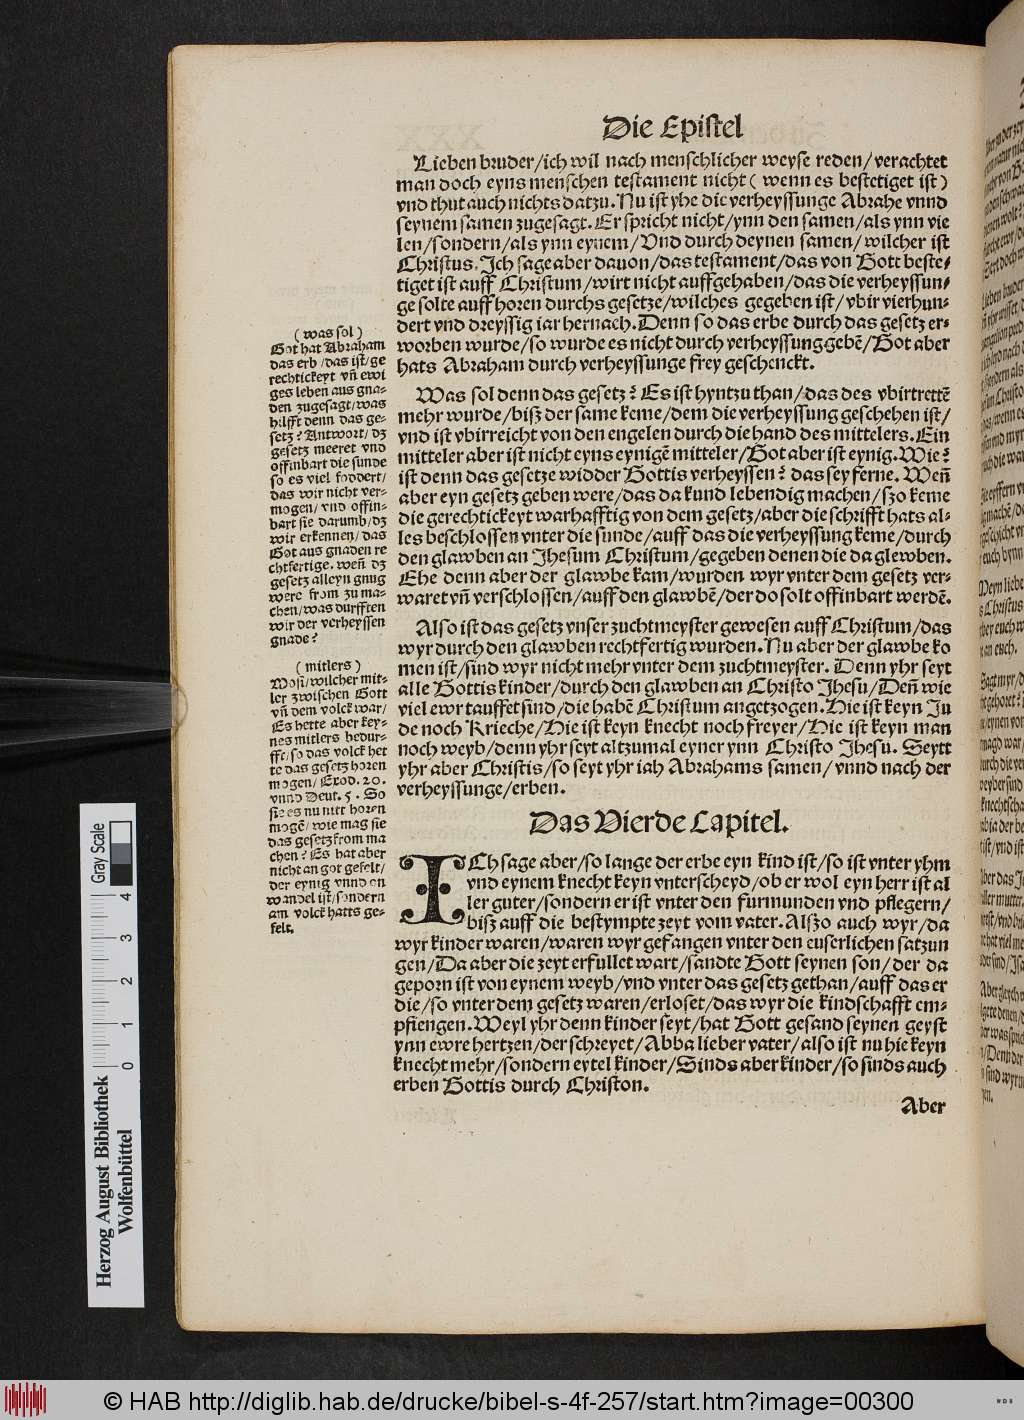 Die Epistel
Lieben bruder/ich wil nach menschlicher weyse reden/verachtet
man doch eyns menschen testament nicht (wenn es bestetiget ist)
vnd thut auch nichts datzu. Nu ist yhe die verheyssunge Abrahe vnnd
seynem samen zugesagt. Er spricht nicht/ynn den samen/als ynn vie
len/sondern/als ynn eynem/Vnd durch deynen samen/wilcher ist
Christus. Ich sage aber dauon/das testament/das von Gott beste/
tiget ist auff Christum/wirt nicht auffgehaben/das die verheyssun/
ge solte auffhoren durchs gesetze/wilches gegeben ist/vbir vierhun-
dert vnd dreyssig iar hernach. Denn so das erbe durch das gesetz er-
worben wurde/so wurde es nicht durch verheyssung gebē/Got aber
hats Abraham durch verheyssunge frey geschenckt.
Was sol denn das gesetz? Es ist hyntzu than/das des vbirtrettē
mehr wurde/bisz der same keme/dem die verheyssung geschehen ist/
vnd ist vbirreicht von den engelen durch die hand des mittelers. Ein
mitteler aber ist nicht eyns eynigē mitteler/Got aber ist eynig. Wie?
ist denn das gesetze widder Gottis verheyssen? das sey ferne. Weñ
aber eyn gesetz geben were/das da kund lebendig machen/szo keme
die gerechtickeyt warhafftig von dem gesetz/aber die schrifft hats al-
les beschlossen vnter die sunde/auff das die verheyssung keme/durch
den glawben an Jhesum Christum/gegeben denen die da glewben.
Ehe denn aber der glawbe kam/wurden wyr vnter dem gesetz ver-
waret vñ verschlossen/auff den glawbē/der do solt offinbart werdē.
Also ist das gesetz vnser zuchtmeyster gewesen auff Christum/das
wyr durch den glawben rechtfertig wurden. Nu aber der glawbe ko
men ist/sind wyr nicht mehr vnter dem zuchtmeyster. Denn yhr seyt
alle Gottis kinder/durch den glawben an Christo Jhesu/Deñ wie
viel ewr tauffet sind/die habē Christum angetzogen. Hie ist keyn Ju
de noch Krieche/Hie ist keyn knecht noch freyer/Hie ist keyn man
noch weyb/denn yhr seyt altzumal eyner ynn Christo Jhesu. Seytt
yhr aber Christis/so seyt yhr iah Abrahams samen/vnnd nach der
verheyssunge/erben.
Das Vierde Capitel.
ICh sage aber/so lange der erbe eyn kind ist/so ist vnter yhm
vnd eynem knecht keyn vnterscheyd/ob er wol eyn herr ist al
ler guter/sondern er ist vnter den furmunden vnd pflegern/
bisz auff die bestympte zeyt vom vater. Alszo auch wyr/da
wyr kinder waren/waren wyr gefangen vnter den euserlichen satzun
gen/Da aber die zeyt erfullet wart/sandte Gott seynen son/der da
geporn ist von eynem weyb/vnd vnter das gesetz gethan/auff das er
die/so vnter dem gesetz waren/erloset/das wyr die kindschafft em-
pfiengen. Weyl yhr denn kinder seyt/hat Gott gesand seynen geyst
ynn ewre hertzen/der schreyet/Abba lieber vater/also ist nu hie keyn
knecht mehr/sondern eytel kinder/Sinds aber kinder/so sinds auch
erben Gottis durch Christon.
Aber
(was sol)
Got hat Abraham
das erb/das ist/ge
rechtickeyt vñ ewi
ges leben aus gna-
den zugesagt/was
hilfft denn das ge-
setz? Antwort/dz
gesetz meeret vnd
offinbart die sunde
so es viel foddert/
das wir nicht ver-
mogen/vnd offin-
bart sie darumb/dz
wir erkennen/das
Got aus gnaden re
chtfertige. weñ dz
gesetz alleyn gnug
were from zu ma-
chen/was durfften
wir der verheyssen
gnade?
(mitlers)
Mosñ/wilcher mit-
ler zwischen Gott
vñ dem volck war/
Es hette aber key-
nes mitlers bedur-
ffe/so das volck het
te das gesetz horen
mogen/Exod. 20.
vnnd Deut. 5. So
sie es nu nitt horen
mogē/wie mag sie
das gesetz from ma
chen? Es hat aber
nicht an got gefelt/
der eynig vnnd on
wandel ist/sondern
am volck hatts ge-
felt.
Gray Scale
0 1 2 3 4
Herzog August Bibliothek
Wolfenbüttel
© HAB http://diglib.hab.de/drucke/bibel-s-4f-257/start.htm?image=00300